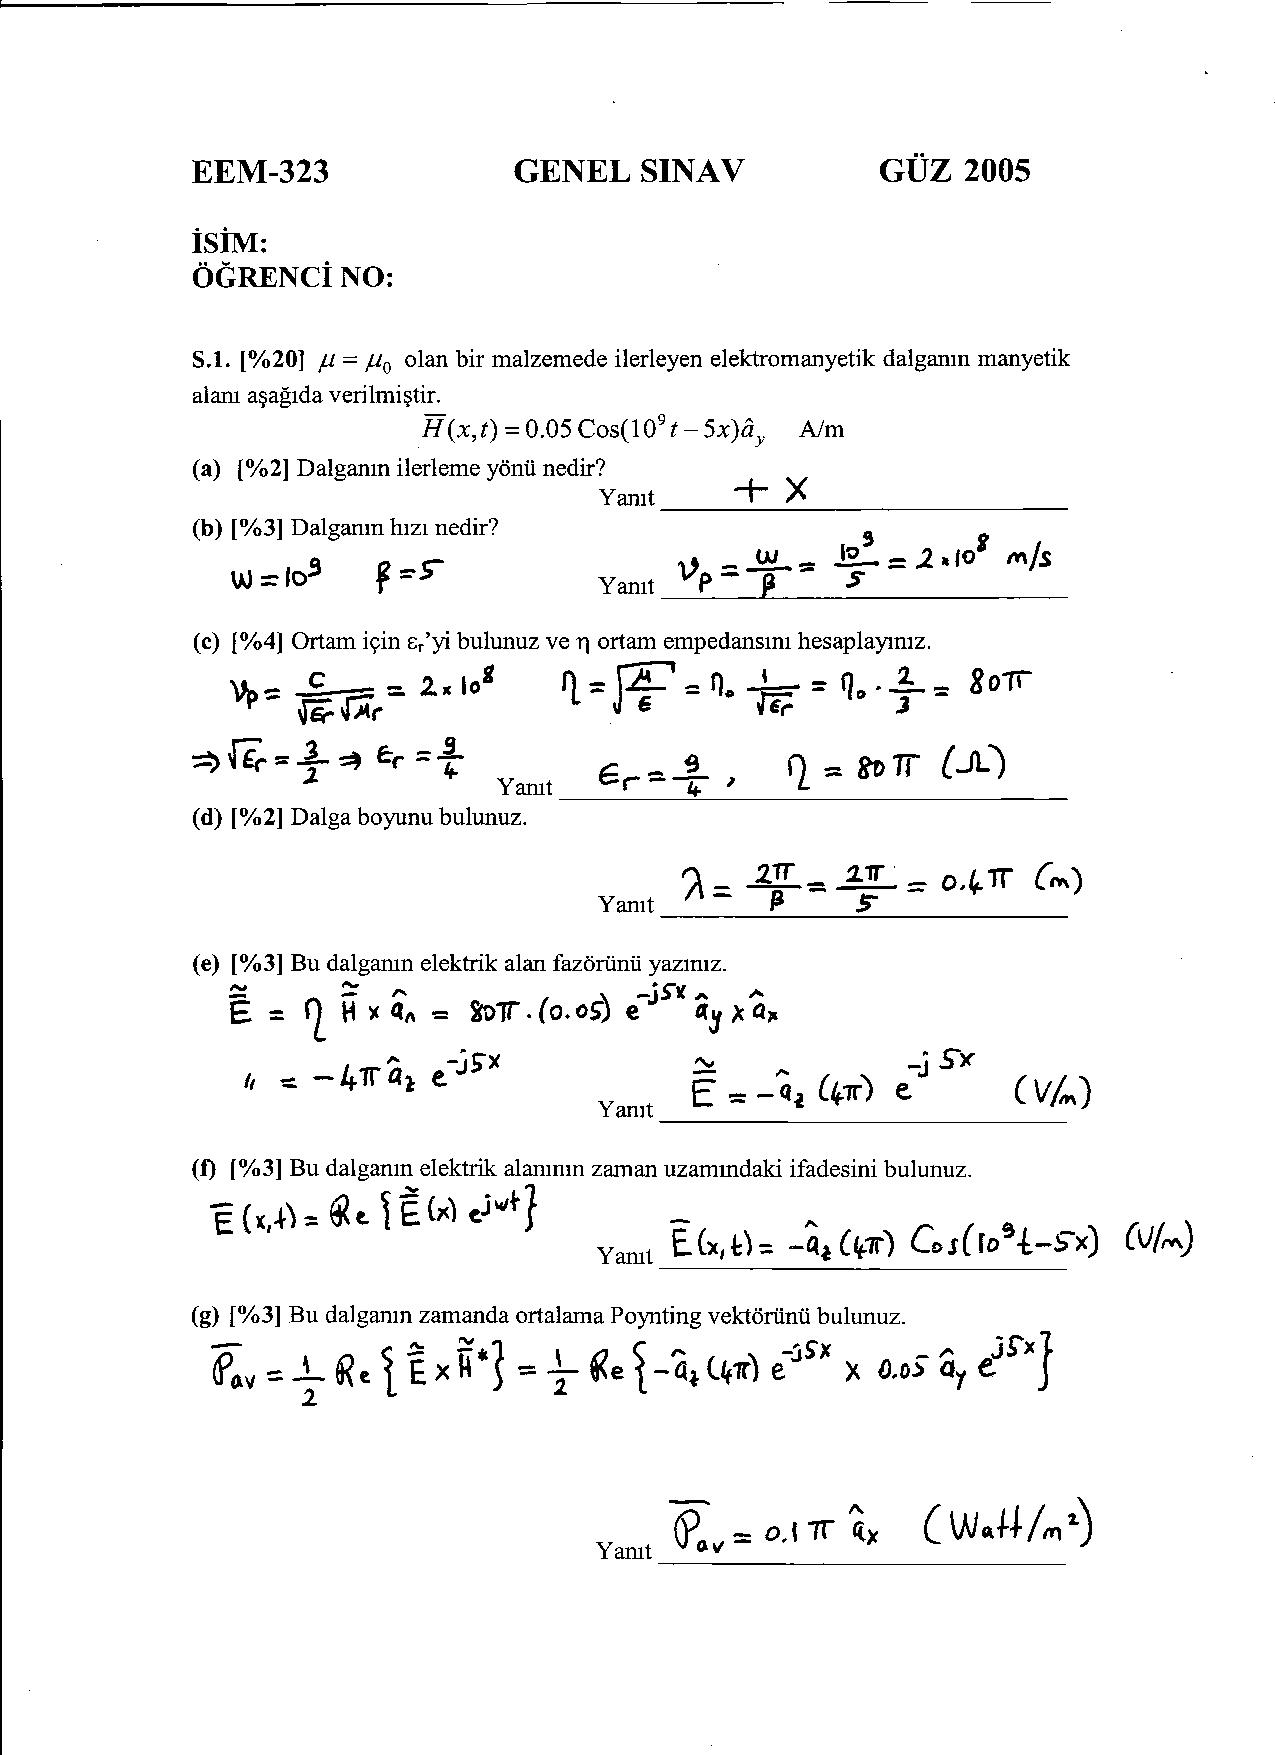 EEM-323 GENEL SINAV GÜZ 2005
İSİM:
ÖĞRENCİ NO:
S.1. [%20] μ = μ₀ olan bir malzemede ilerleyen elektromanyetik dalganın manyetik
alanı aşağıda verilmiştir.
H̅(x,t) = 0.05 Cos(10⁹t − 5x)â_y A/m
(a) [%2] Dalganın ilerleme yönü nedir?
Yanıt + x
(b) [%3] Dalganın hızı nedir?
w = 10⁹ β = 5 Yanıt υ_p = w/β = 10⁹/5 = 2×10⁸ m/s
(c) [%4] Ortam için ε_r'yi bulunuz ve η ortam empedansını hesaplayınız.
υ_p = c/(√ε_r √μ_r) = 2×10⁸ η = √(μ/ε) = η₀ 1/√ε_r = η₀ · 2/3 = 80π
⇒ √ε_r = 3/2 ⇒ ε_r = 9/4
Yanıt ε_r = 9/4 , η = 80π (Ω)
(d) [%2] Dalga boyunu bulunuz.
Yanıt λ = 2π/β = 2π/5 = 0.4π (m)
(e) [%3] Bu dalganın elektrik alan fazörünü yazınız.
Ẽ̅ = η H̃̅ × â_n = 80π · (0.05) e^(-j5x) â_y × â_x
" = −4π â_z e^(-j5x)
Yanıt Ẽ̅ = −â_z (4π) e^(-j5x) (V/m)
(f) [%3] Bu dalganın elektrik alanının zaman uzamındaki ifadesini bulunuz.
E̅(x,t) = Re {Ẽ̅(x) e^(jwt)}
Yanıt E̅(x,t) = −â_z (4π) Cos(10⁹t−5x) (V/m)
(g) [%3] Bu dalganın zamanda ortalama Poynting vektörünü bulunuz.
P̅_av = 1/2 Re {Ẽ̅ × H̃̅*} = 1/2 Re {−â_z (4π) e^(-j5x) × 0.05 â_y e^(j5x)}
Yanıt P̅_av = 0.1 π â_x (Watt/m²)